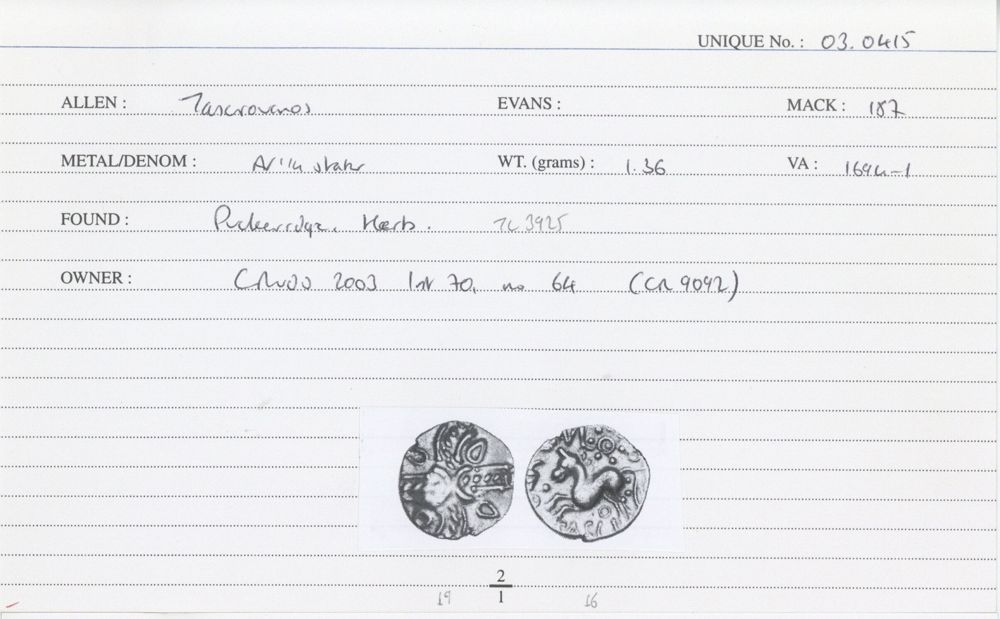 UNIQUE No. : 03.0415
ALLEN : Tasciovanos EVANS : MACK : 187
METAL/DENOM : AV 1/4 stater WT. (grams) : 1.36 VA : 1694-1
FOUND : Puckeridge, Herts. TL 3925
OWNER : 2003 70, no 64 (CR 9092)
2
1
19 16